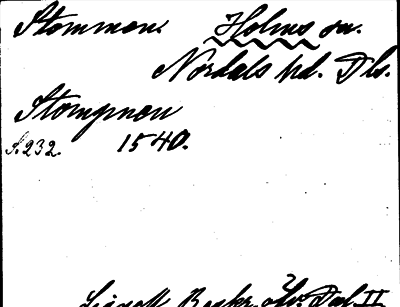 Stommen. Holms sn.
Nordals hd. Dls.
Stompnen
S. 232. 1540.
Dal II